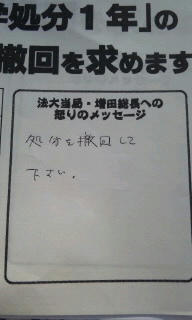 学処分１年」の
撤回を求めます
法大当局・増田総長への
怒りのメッセージ
処分を撤回して
下さい。